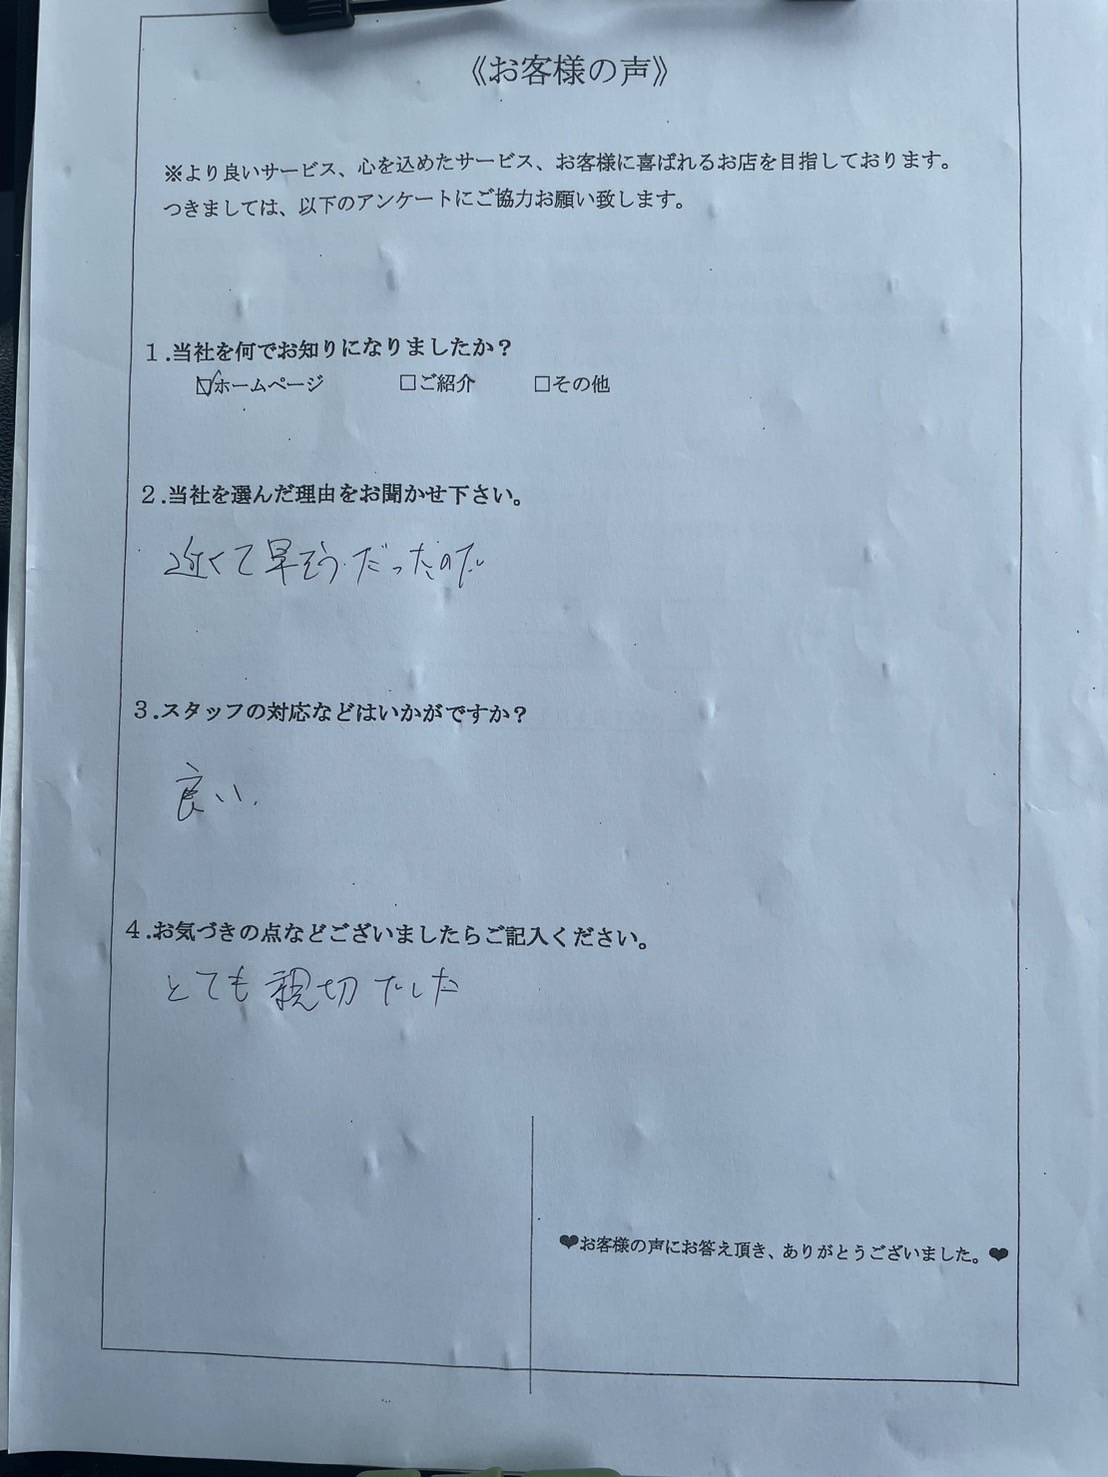 《お客様の声》
※より良いサービス、心を込めたサービス、お客様に喜ばれるお店を目指しております。
つきましては、以下のアンケートにご協力お願い致します。
１.当社を何でお知りになりましたか？
☑ホームページ □ご紹介 □その他
２.当社を選んだ理由をお聞かせ下さい。
近くて早そうだったので
３.スタッフの対応などはいかがですか？
良い.
４.お気づきの点などございましたらご記入ください。
とても親切でした
❤お客様の声にお答え頂き、ありがとうございました。❤